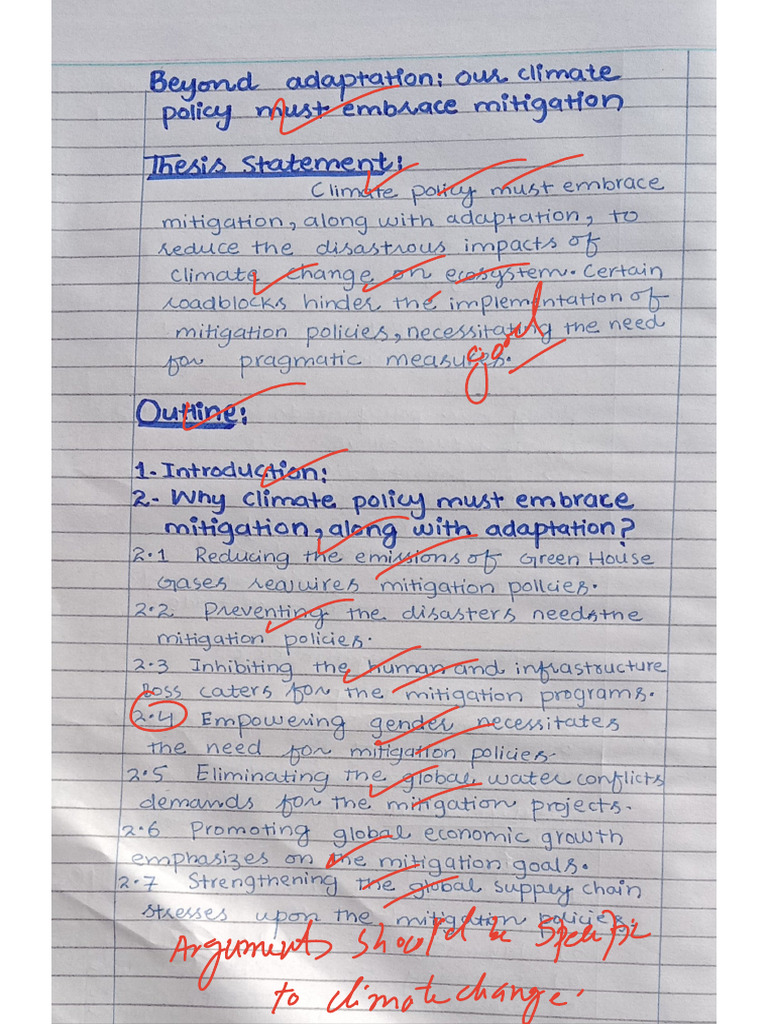 Beyond adaptation: our climate
policy must embrace mitigation
Thesis Statement:
Climate policy must embrace
mitigation, along with adaptation, to
reduce the disastrous impacts of
climate change on ecosystem. Certain
roadblocks hinder the implementation of
mitigation policies, necessitating the need
for pragmatic measures.
good
Outline:
1- Introduction:
2- Why climate policy must embrace
mitigation, along with adaptation?
2.1 Reducing the emissions of Green House
Gases requires mitigation policies.
2.2 Preventing the disasters needs the
mitigation policies.
2.3 Inhibiting the human and infrastructure
loss caters for the mitigation programs.
2.4 Empowering gender necessitates
the need for mitigation policies.
2.5 Eliminating the global water conflicts
demands for the mitigation projects.
2.6 Promoting global economic growth
emphasizes on the mitigation goals.
2.7 Strengthening the global supply chain
stresses upon the mitigation policies.
Arguments should be specific
to climate change.